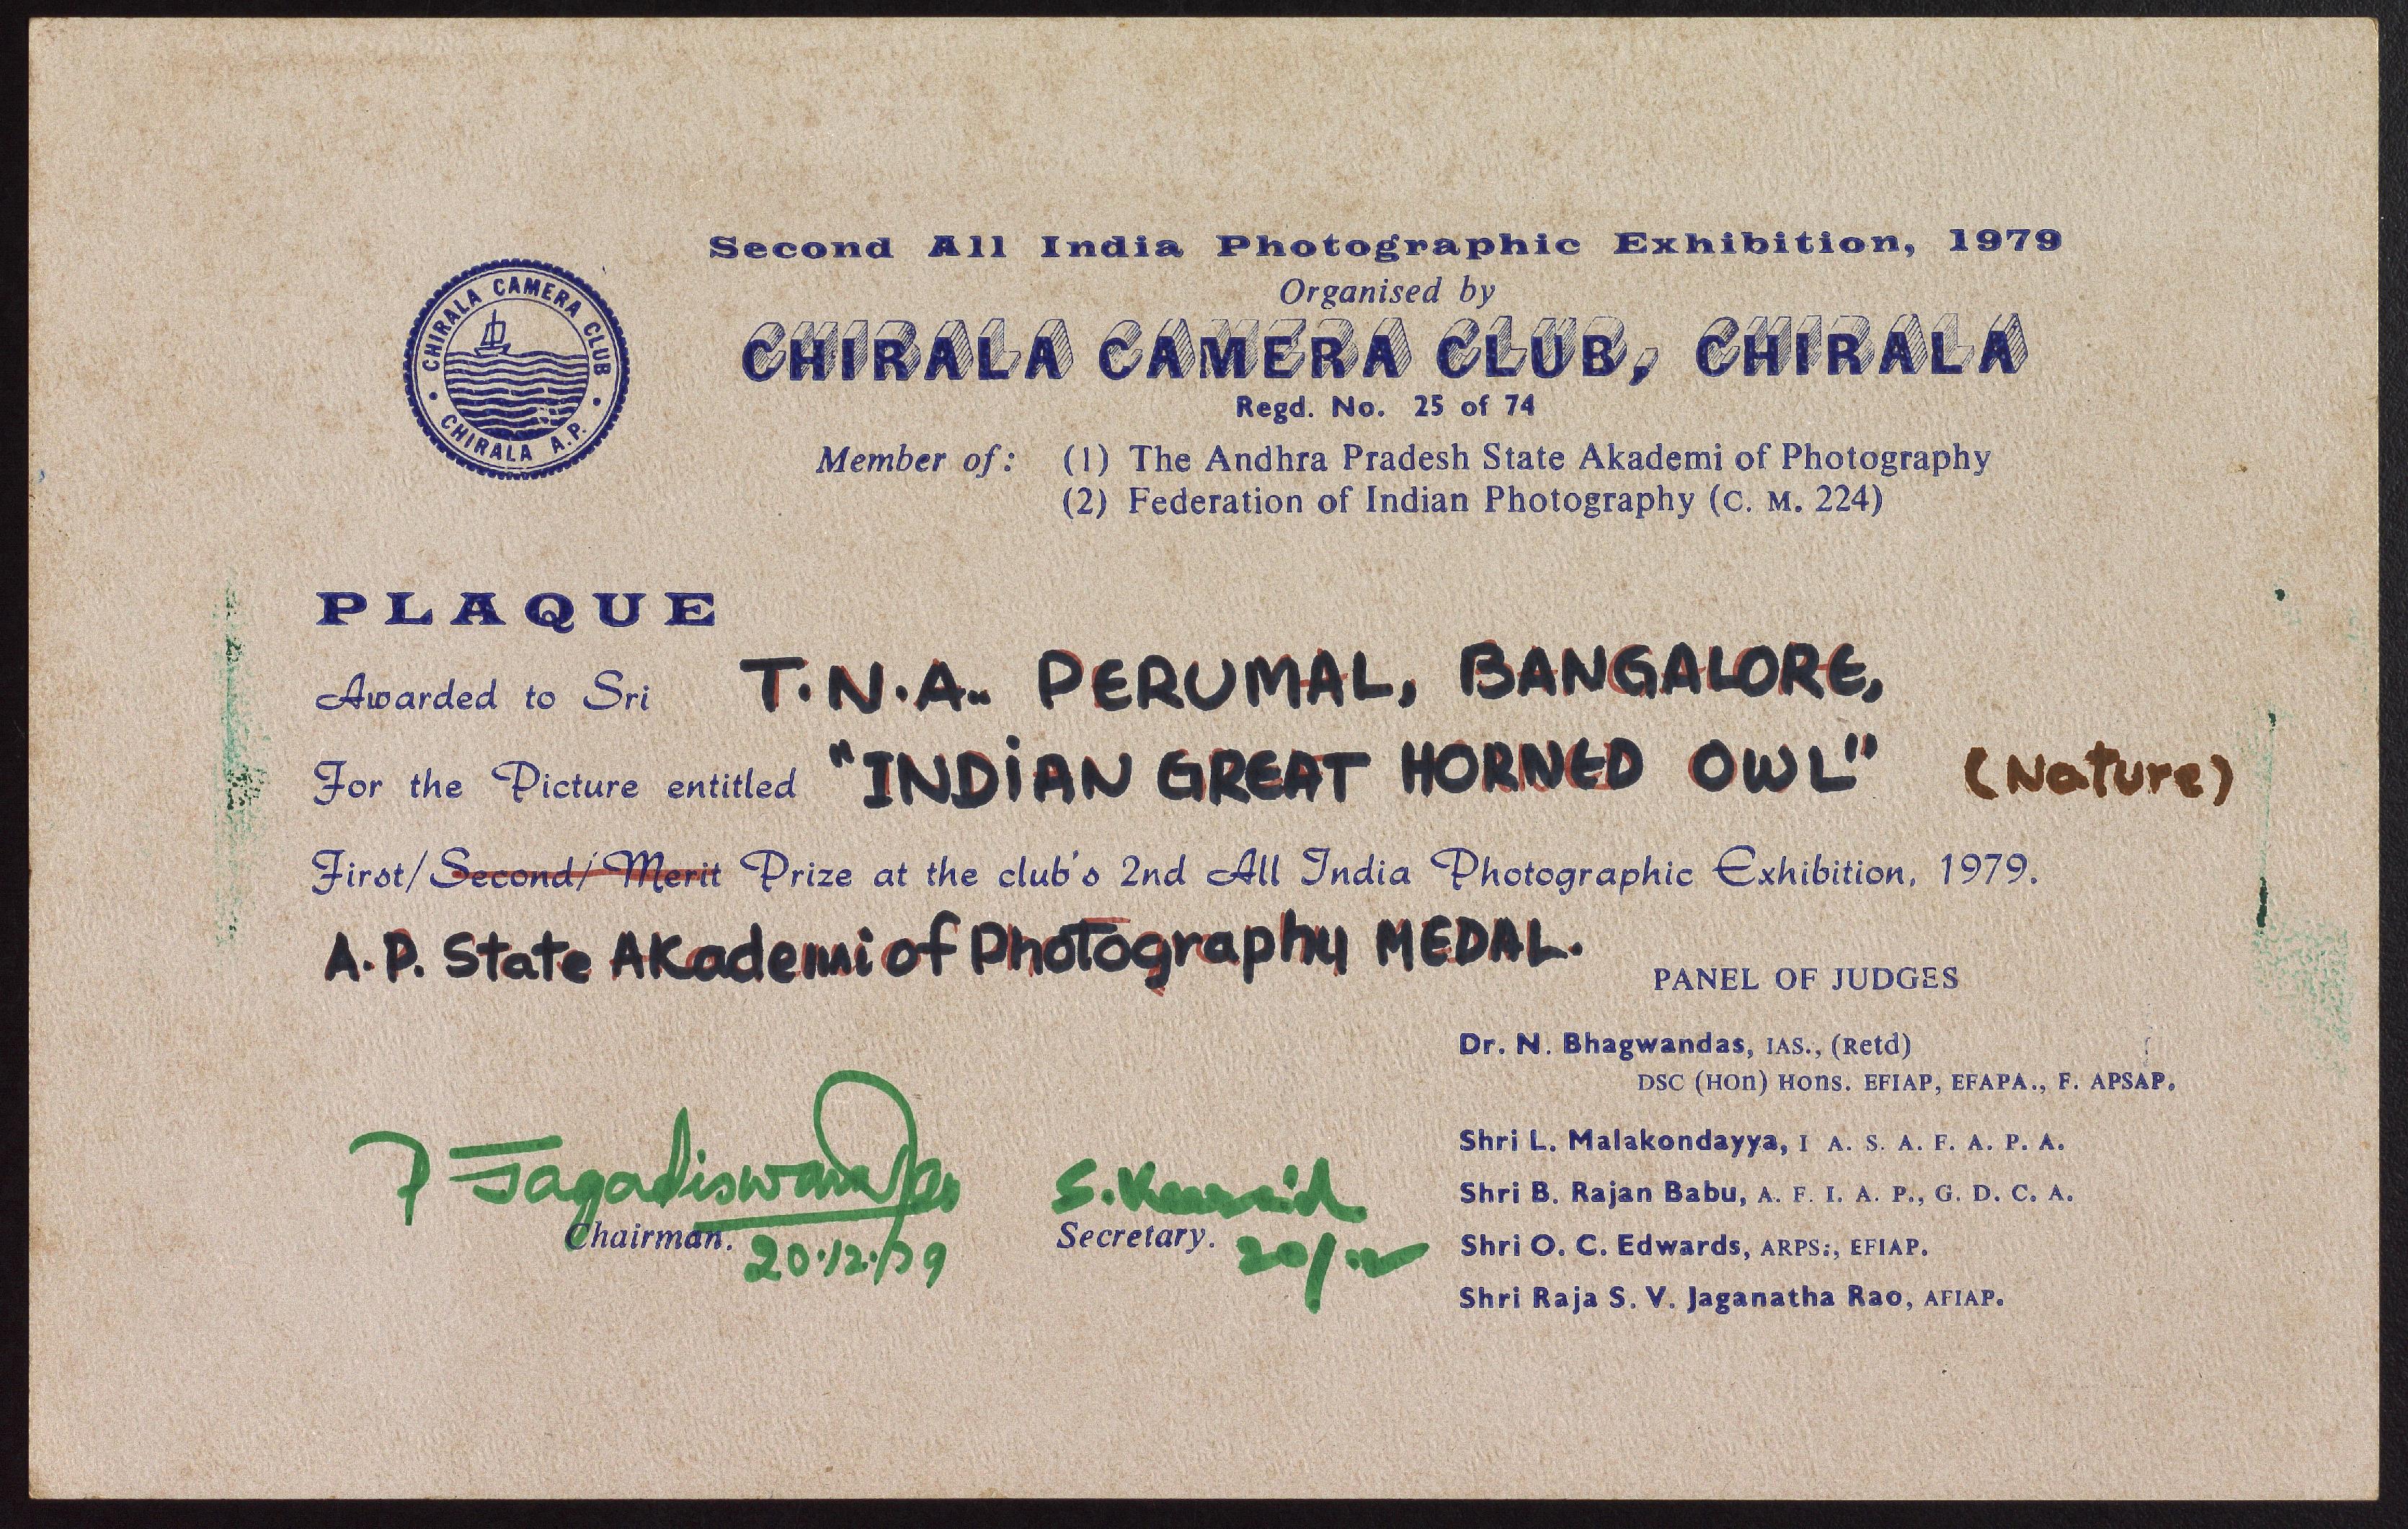 Second All India Photographic Exhibition, 1979
Organised by
CHIRALA CAMERA CLUB, CHIRALA
Regd. No. 25 of 74
CHIRALA CAMERA CLUB
CHIRALA A.P.
Member of: (1) The Andhra Pradesh State Akademi of Photography
(2) Federation of Indian Photography (C. M. 224)
PLAQUE
Awarded to Sri T.N.A. PERUMAL, BANGALORE,
For the Picture entitled "INDIAN GREAT HORNED OWL" (Nature)
First/Second/Merit Prize at the club's 2nd All India Photographic Exhibition, 1979.
A.P. State Akademi of Photography MEDAL.
PANEL OF JUDGES
Dr. N. Bhagwandas, IAS., (Retd)
DSC (HOn) Hons. EFIAP, EFAPA., F. APSAP.
Shri L. Malakondayya, I A. S. A. F. A. P. A.
Shri B. Rajan Babu, A. F. I. A. P., G. D. C. A.
Shri O. C. Edwards, ARPS:, EFIAP.
Shri Raja S. V. Jaganatha Rao, AFIAP.
Chairman.
20.12.79
S.
Secretary.
20/12